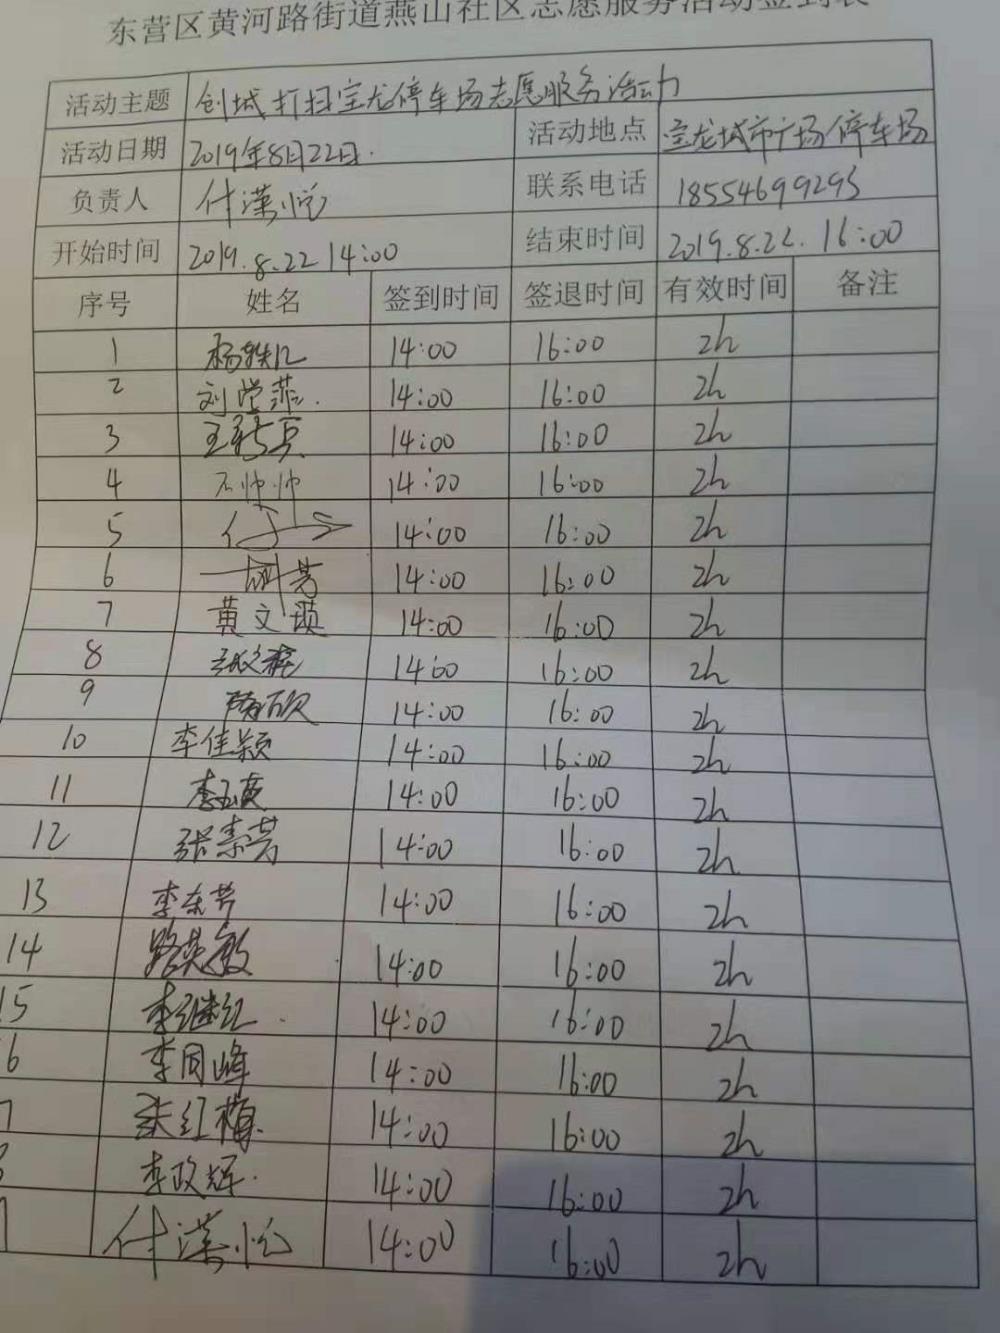 东营区黄河路街道燕山社区志愿服务活动签到表
活动主题 创城打扫宝龙停车场志愿服务活动
活动日期 2019年8月22日. 活动地点 宝龙城市广场停车场
负责人 付潇悦 联系电话 18554699293
开始时间 2019.8.22 14:00 结束时间 2019.8.22. 16:00
序号 姓名 签到时间 签退时间 有效时间 备注
1 14:00 16:00 2h
2 刘学菲. 14:00 16:00 2h
3 14:00 16:00 2h
4 石帅帅 14:00 16:00 2h
5 14:00 16:00 2h
6 14:00 16:00 2h
7 黄文瑛 14:00 16:00 2h
8 14:00 16:00 2h
9 14:00 16:00 2h
10 李佳颖 14:00 16:00 2h
11 李玉英 14:00 16:00 2h
12 张素芳 14:00 16:00 2h
13 李东芹 14:00 16:00 2h
14 路英敏 14:00 16:00 2h
15 李继红. 14:00 16:00 2h
6 李同峰 14:00 16:00 2h
7 张红梅. 14:00 16:00 2h
李政辉. 14:00 16:00 2h
付潇悦 14:00 16:00 2h